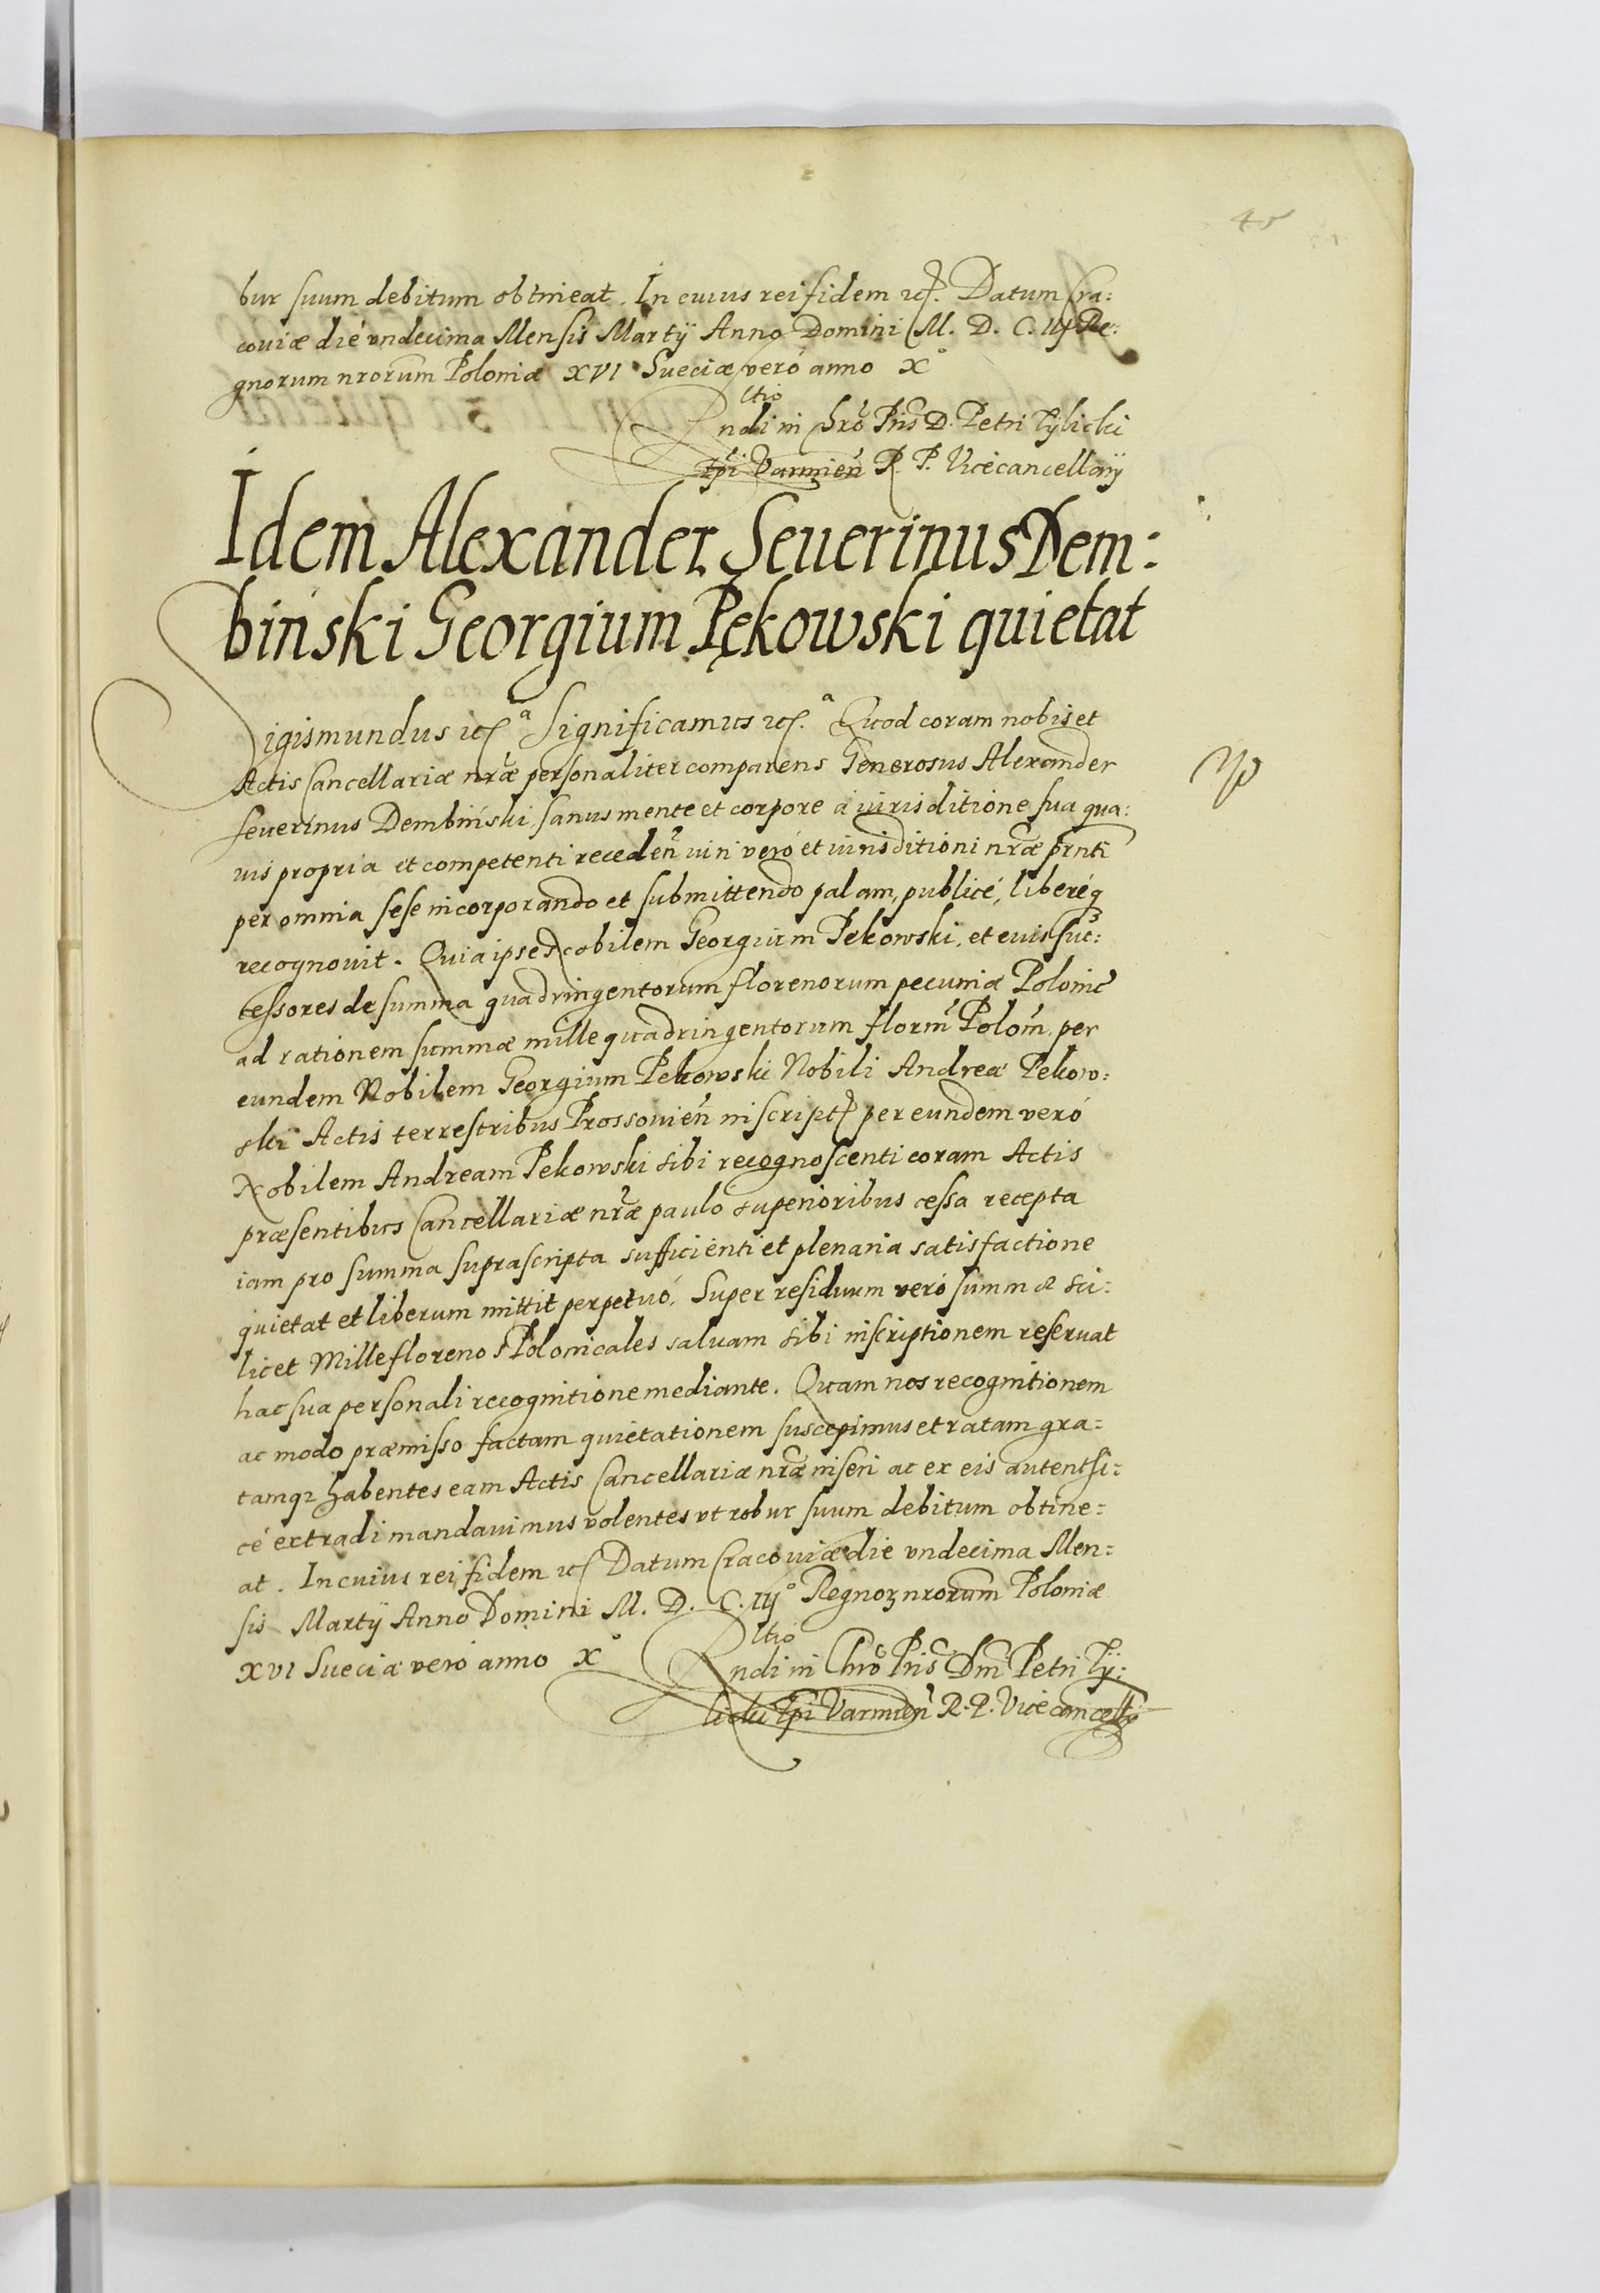 45
bur suum debitum obtineat. In cuius rei fidem etc. Datum Cra:
coviæ die undecima Mensis Martÿ Anno Domini M. D. C. IIJ Re:
gnorum nrorum Poloniæ XVI Sueciæ veró anno X°
Rltio
ndi in Chro Pris D. Petri Tÿlicki
Epi Varmien R. P. Vicecancellarÿ
Idem Alexander Seuerinus Dem:
biński Georgium Pękowski quietat
Sigismundus etc.ª Significamus etc.ª Quod coram nobis et
Actis Cancellariæ nræ personaliter comparens Generosus Alexander
seuerinus Dembiński, sanus mente et corpore á iurisditione sua qua:
uis propria et competenti receden iuri veró et iurisditioni nræ prnti
per omnia sese incorporando et submittendo palam, publicé, liberéq
recognouit. Quia ipse Nobilem Georgium Pekowski, et euis suc:
cessores de summa quadringentorum florenorum pecuniæ Polonic
ad rationem summæ mille quadringentorum florm Polom, per
eundem Nobilem Georgium Pekowski Nobili Andreæ Pekow:
ski Actis terrestribus Prossouien inscript per eundem veró
Nobilem Andream Pekowski sibi recognoscenti coram Actis
præsentibus Cancellariæ nræ paulo superioribus cessa recepta
iam pro summa suprascripta sufficienti et plenaria satisfactione
quietat et liberum mittit perpetuó. Super residuum veró summæ sci:
licet Mille florenos Polonicales saluam sibi inscriptionem reseruat
hac sua personali recognitione mediante. Quam nos recognitionem
ac modo præmisso factam quietationem suscepimus et ratam gra=
tamq habentes eam Actis Cancellariæ nræ inseri ac ex eis autenthi:
cé extradi mandauimus volentes vt robur suum debitum obtine=
at. In cuius rei fidem etc Datum Cracoviæ die undecima Men=
sis Martÿ Anno Domini M. D. C. IIJ° Regnoꝝ nrorum Poloniæ
XVI Sueciæ veró anno X°
Rltio
ndi in Chro Pris Dni Petri Tÿ:
licki Epi Varmien R. P. Vicecancellÿ